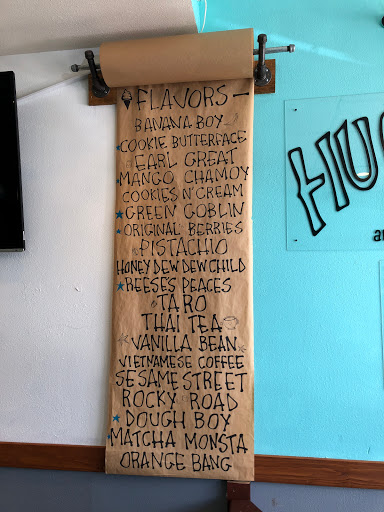 FLAVORS
BANANA BOY
COOKIE BUTTERFACE
EARL GREAT
MANGO CHAMOY
COOKIES N' CREAM
GREEN GOBLIN
ORIGINAL BERRIES
PISTACHIO
HONEY DEW DEW CHILD
REESES PEACES
TARO
THAI TEA
VANILLA BEAN
VIETNAMESE COFFEE
SESAME STREET
ROCKY ROAD
DOUGH BOY
MATCHA MONSTA
ORANGE BANG